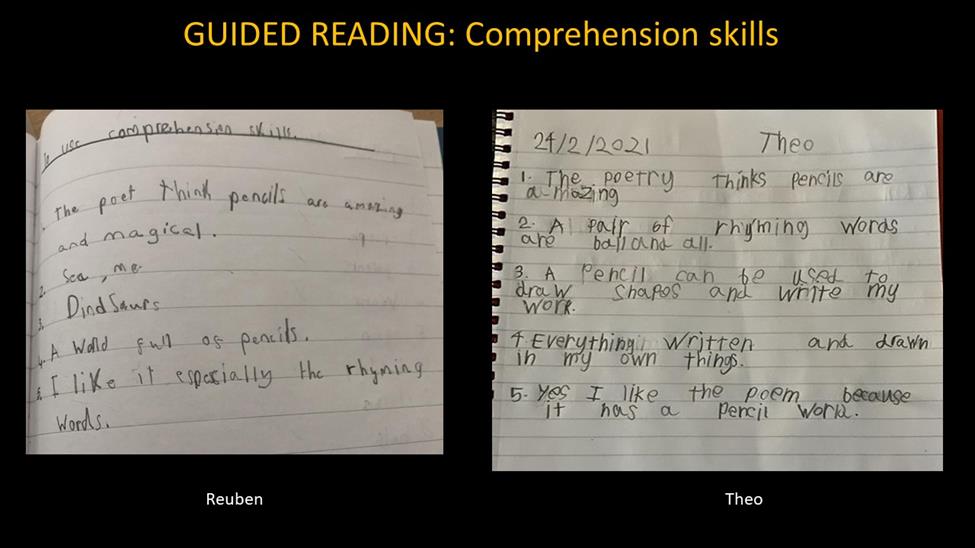 GUIDED READING: Comprehension skills
To use comprehension skills.
1. The poet think pencils are amazing
and magical.
2. Sea, me
3. Dindsaurs
4. A World full of pencils.
5. I like it especially the rhyming
words.
24/2/2021 Theo
1. The poetry thinks pencils are
a-mazing
2. A pair of rhyming words
are ball and all.
3. A Pencil can be used to
draw shapos and write my
work.
4 Everything written and drawn
in my own things.
5. Yes I like the poem because
it has a pencil work.
Reuben
Theo